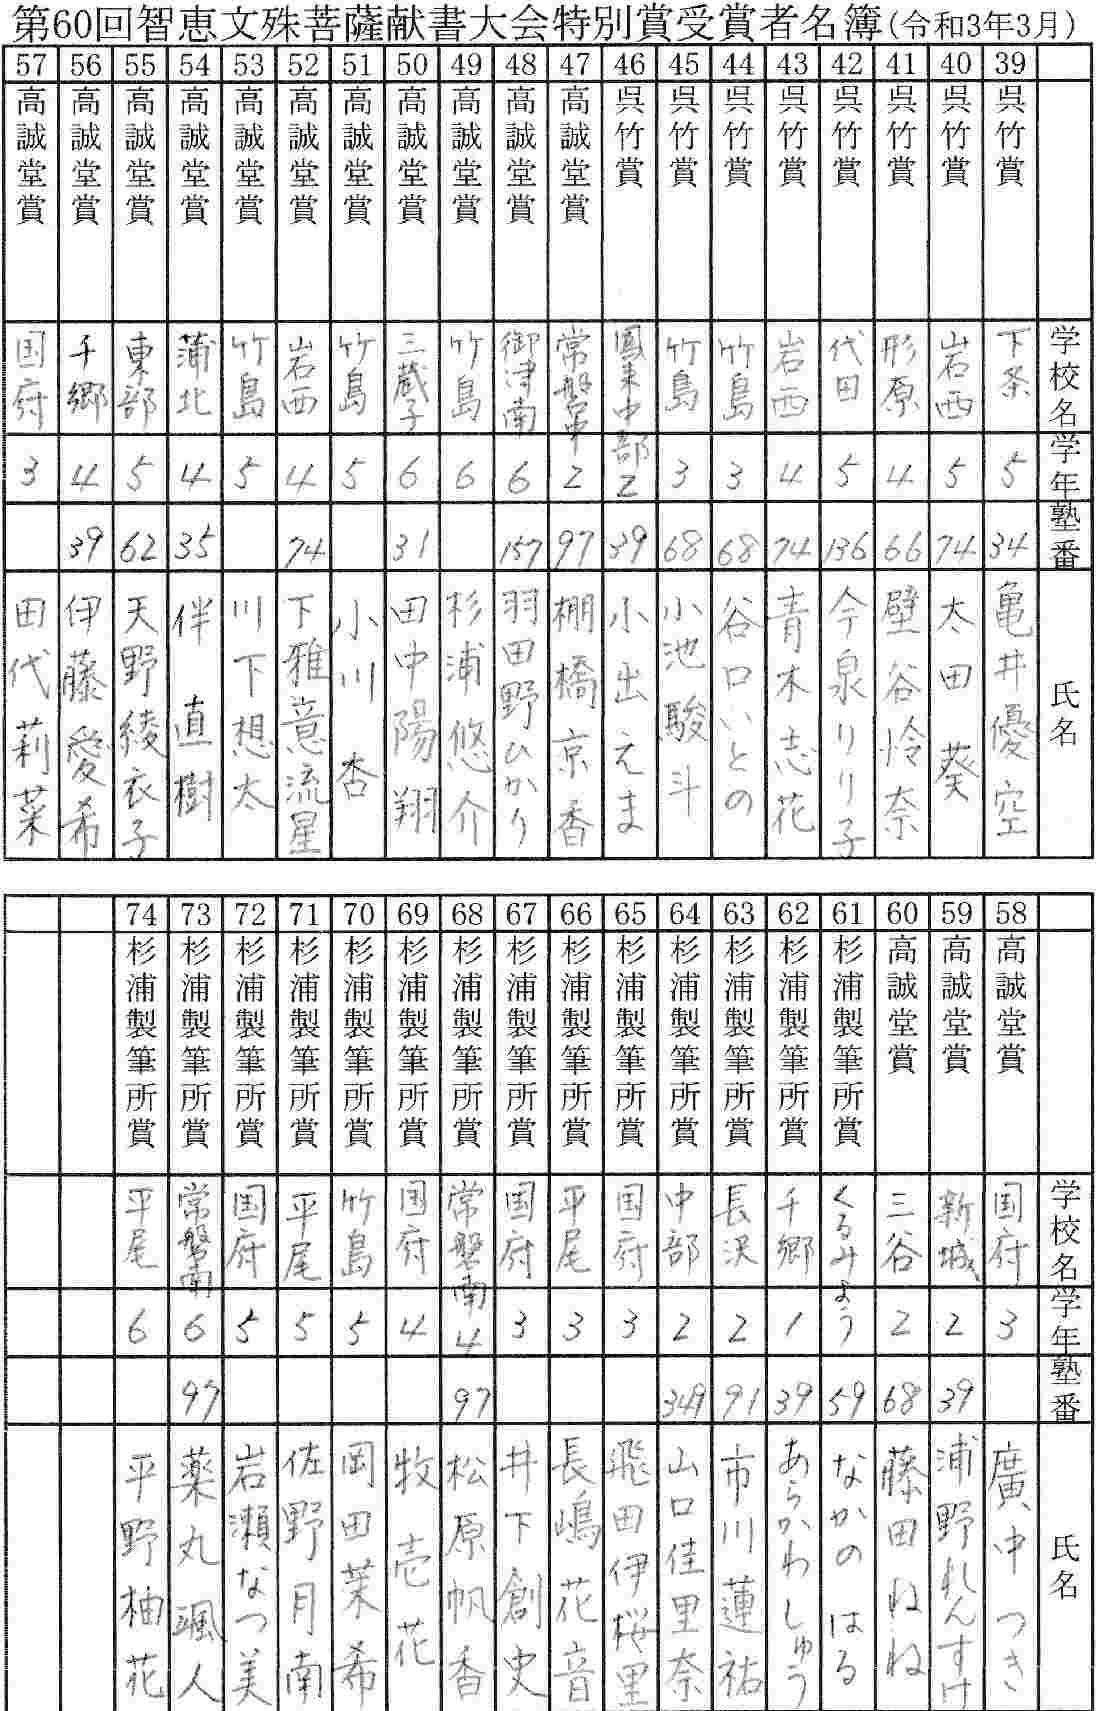 第60回智恵文殊菩薩献書大会特別賞受賞者名簿(令和3年3月)
学校名 学年 塾番 氏名
39 呉竹賞 下条 5 34 亀井優空
40 呉竹賞 岩西 5 74 太田 葵
41 呉竹賞 形原 4 66 壁谷怜奈
42 呉竹賞 代田 5 136 今泉りり子
43 呉竹賞 岩西 4 74 青木志花
44 呉竹賞 竹島 3 68 谷口いとの
45 呉竹賞 竹島 3 68 小池駿斗
46 呉竹賞 鳳来中部 2 39 小出えま
47 高誠堂賞 常磐中 2 97 棚橋京香
48 高誠堂賞 御津南 6 157 羽田野ひかり
49 高誠堂賞 竹島 6 杉浦悠介
50 高誠堂賞 三蔵子 6 31 田中陽翔
51 高誠堂賞 竹島 5 小川 杏
52 高誠堂賞 岩西 4 74 下雅意流星
53 高誠堂賞 竹島 5 川下想太
54 高誠堂賞 蒲北 4 35 伴 直樹
55 高誠堂賞 東部 5 62 天野綾衣子
56 高誠堂賞 千郷 4 39 伊藤愛希
57 高誠堂賞 国府 3 田代莉菜
学校名 学年 塾番 氏名
58 高誠堂賞 国府 3 廣中 つき
59 高誠堂賞 新城 2 39 浦野れんすけ
60 高誠堂賞 三谷 2 68 藤田ねね
61 杉浦製筆所賞 くるみよう 59 なかの はる
62 杉浦製筆所賞 千郷 1 39 あらかわしゅう
63 杉浦製筆所賞 長沢 2 91 市川蓮祐
64 杉浦製筆所賞 中部 2 349 山口佳里奈
65 杉浦製筆所賞 国府 3 飛田伊桜里
66 杉浦製筆所賞 平尾 3 長嶋花音
67 杉浦製筆所賞 国府 3 井下創史
68 杉浦製筆所賞 常磐南 4 97 松原帆香
69 杉浦製筆所賞 国府 4 牧 壱花
70 杉浦製筆所賞 竹島 5 岡田茉希
71 杉浦製筆所賞 平尾 5 佐野月南
72 杉浦製筆所賞 国府 5 岩瀬なつ美
73 杉浦製筆所賞 常磐南 6 97 薬丸颯人
74 杉浦製筆所賞 平尾 6 平野柚花